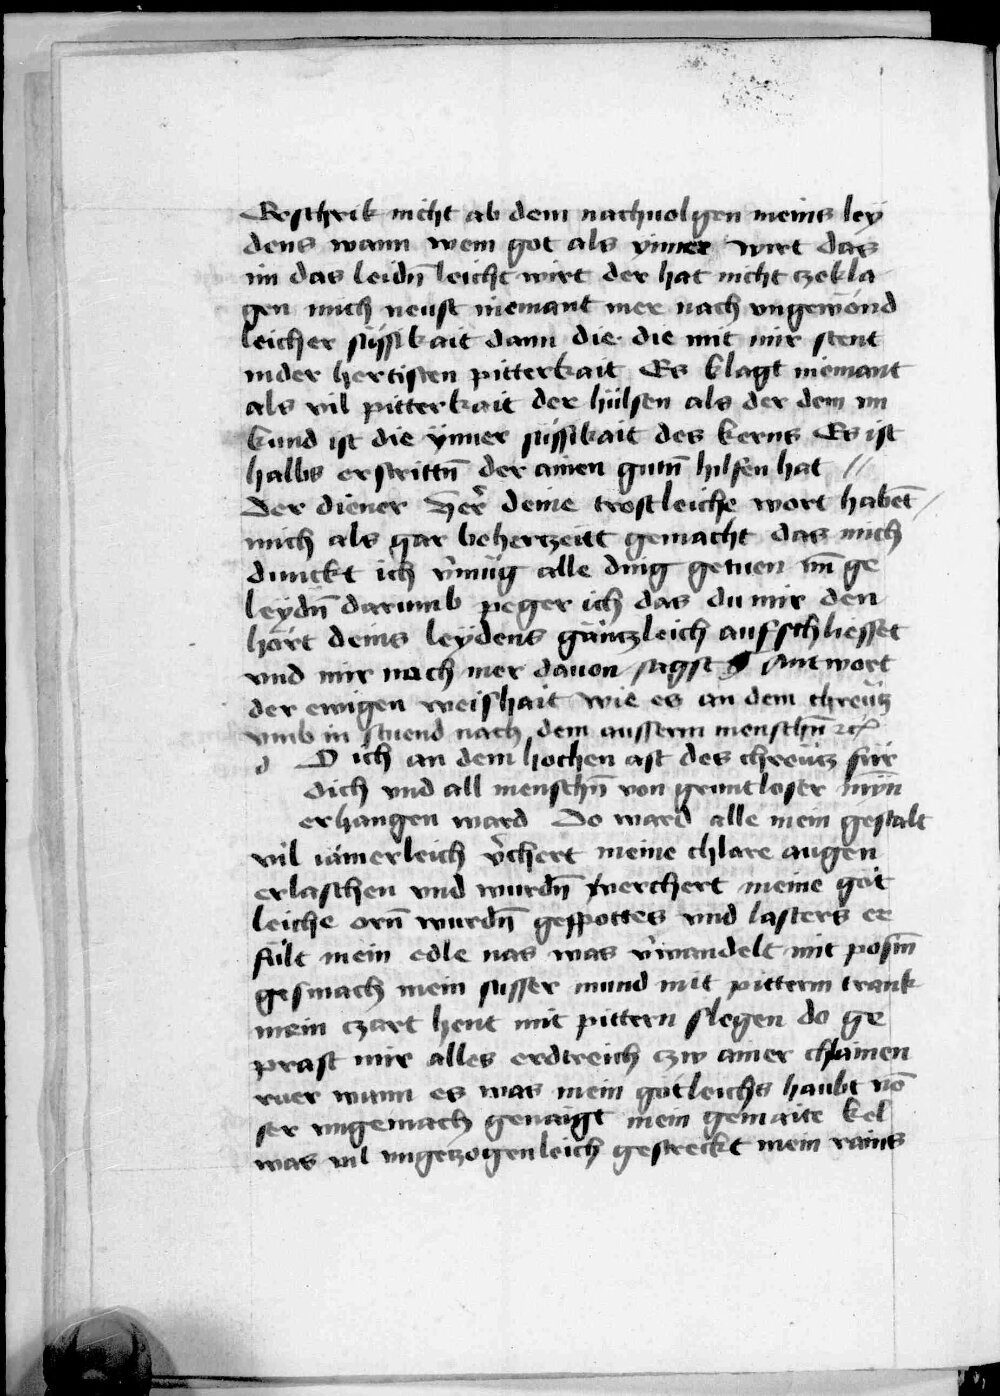 Erschrik nicht ab dem nachuolgen meins ley
dens wann wem got als ynner wirt das
im das leidn̄ leicht wirt der hat nicht czekla
gen mich neust niemant mer nach vngewönd
leicher süssikait dann die die mit mir stent
inder hertisten pitterkait Es klagt niemant
als vil pitterkait der hülsen als der dem vn
kund ist die ynner süssikait des kerns Es ist
halbs erstrittn̄ der ainen gutn̄ hilfen hat //
Der diener Her̄ deine trostleiche wort habēt /
mich als gar behertzeitt gemacht das mich
dunckt ich v̄müg alle ding getuen vn̄ ge
leydn̄ darumb peger ich das du mir den
hört deins leydens gäntzleich aufschliesset
vnd mir nach mer dauon sagst Antwort
der ewigen weishait wie es an dem chreütz
vmb in stuend nach dem aussern menschn̄ ꝛc
d D ich an dem hochen ast des chreütz für
dich vnd all menschn̄ von gruntloser myn̄
erhangen ward Do ward alle mein gestalt
vil iämerleich v̄chert meine chlare augen
erlaschen vnd wurdn̄ verchert meine göt
leiche orn̄ wurdn̄ gespottes vnd lasters er
fült mein edle nas was v̄wandelt mit posm̄
gesmach mein susser mund mit pitterm trank
mein czart hent mit pittern slegen do ge
prast mir alles erdtreich czw ainer chlainen
ruer wann es was mein gotleichs haubt vō
ser vngemach genaigt mein gemaite kel
was vil vngetzogenleich gestreckt mein rains